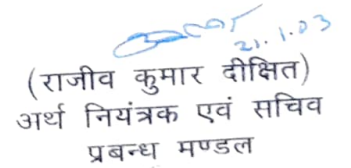 21.1.03
(राजीव कुमार दीक्षित)
अर्थ नियंत्रक एवं सचिव
प्रबन्ध मण्डल